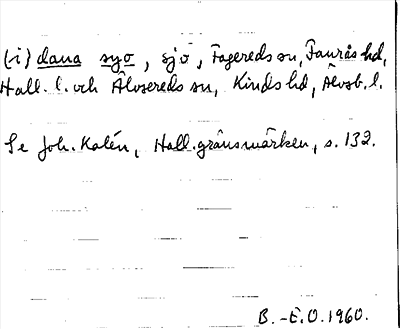 (i) dana syo, sjö, Fagereds sn, Faurås hd,
Hall. l. och Älvsereds sn, Kinds hd, Älvsb. l.
Se Joh. Kalén, Hall. gränsmärken, s. 132.
B.-E.O. 1960.